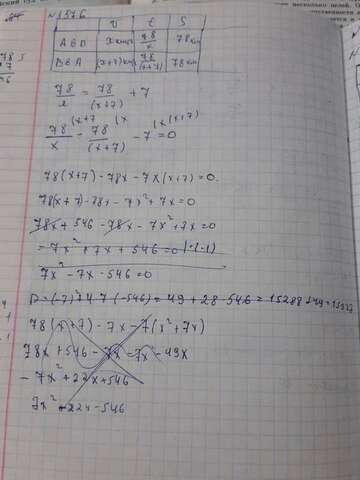 №1376
V t S
A в B x км/ч 78/x 78 км
B в A (x+7) км/ч 78/(x+7) 78 км
78/x = 78/(x+7) + 7
78/x - 78/(x+7) - 7 = 0
78(x+7) - 78x - 7x(x+7) = 0.
78(x+7) - 78x - 7x² + 7x = 0
78x + 546 - 78x - 7x² + 7x = 0
- 7x² + 7x + 546 = 0 | · (-1)
7x² - 7x - 546 = 0
D = (-7)² + 4 · 7 · (-546) = 49 + 28 · 546 = 15288 + 49 = 15337
78(x+7) - 7x - 7(x² + 7x)
78x + 546 - 7x - 7x² - 49x
- 7x² + 22x + 546
7x² - 22x - 546